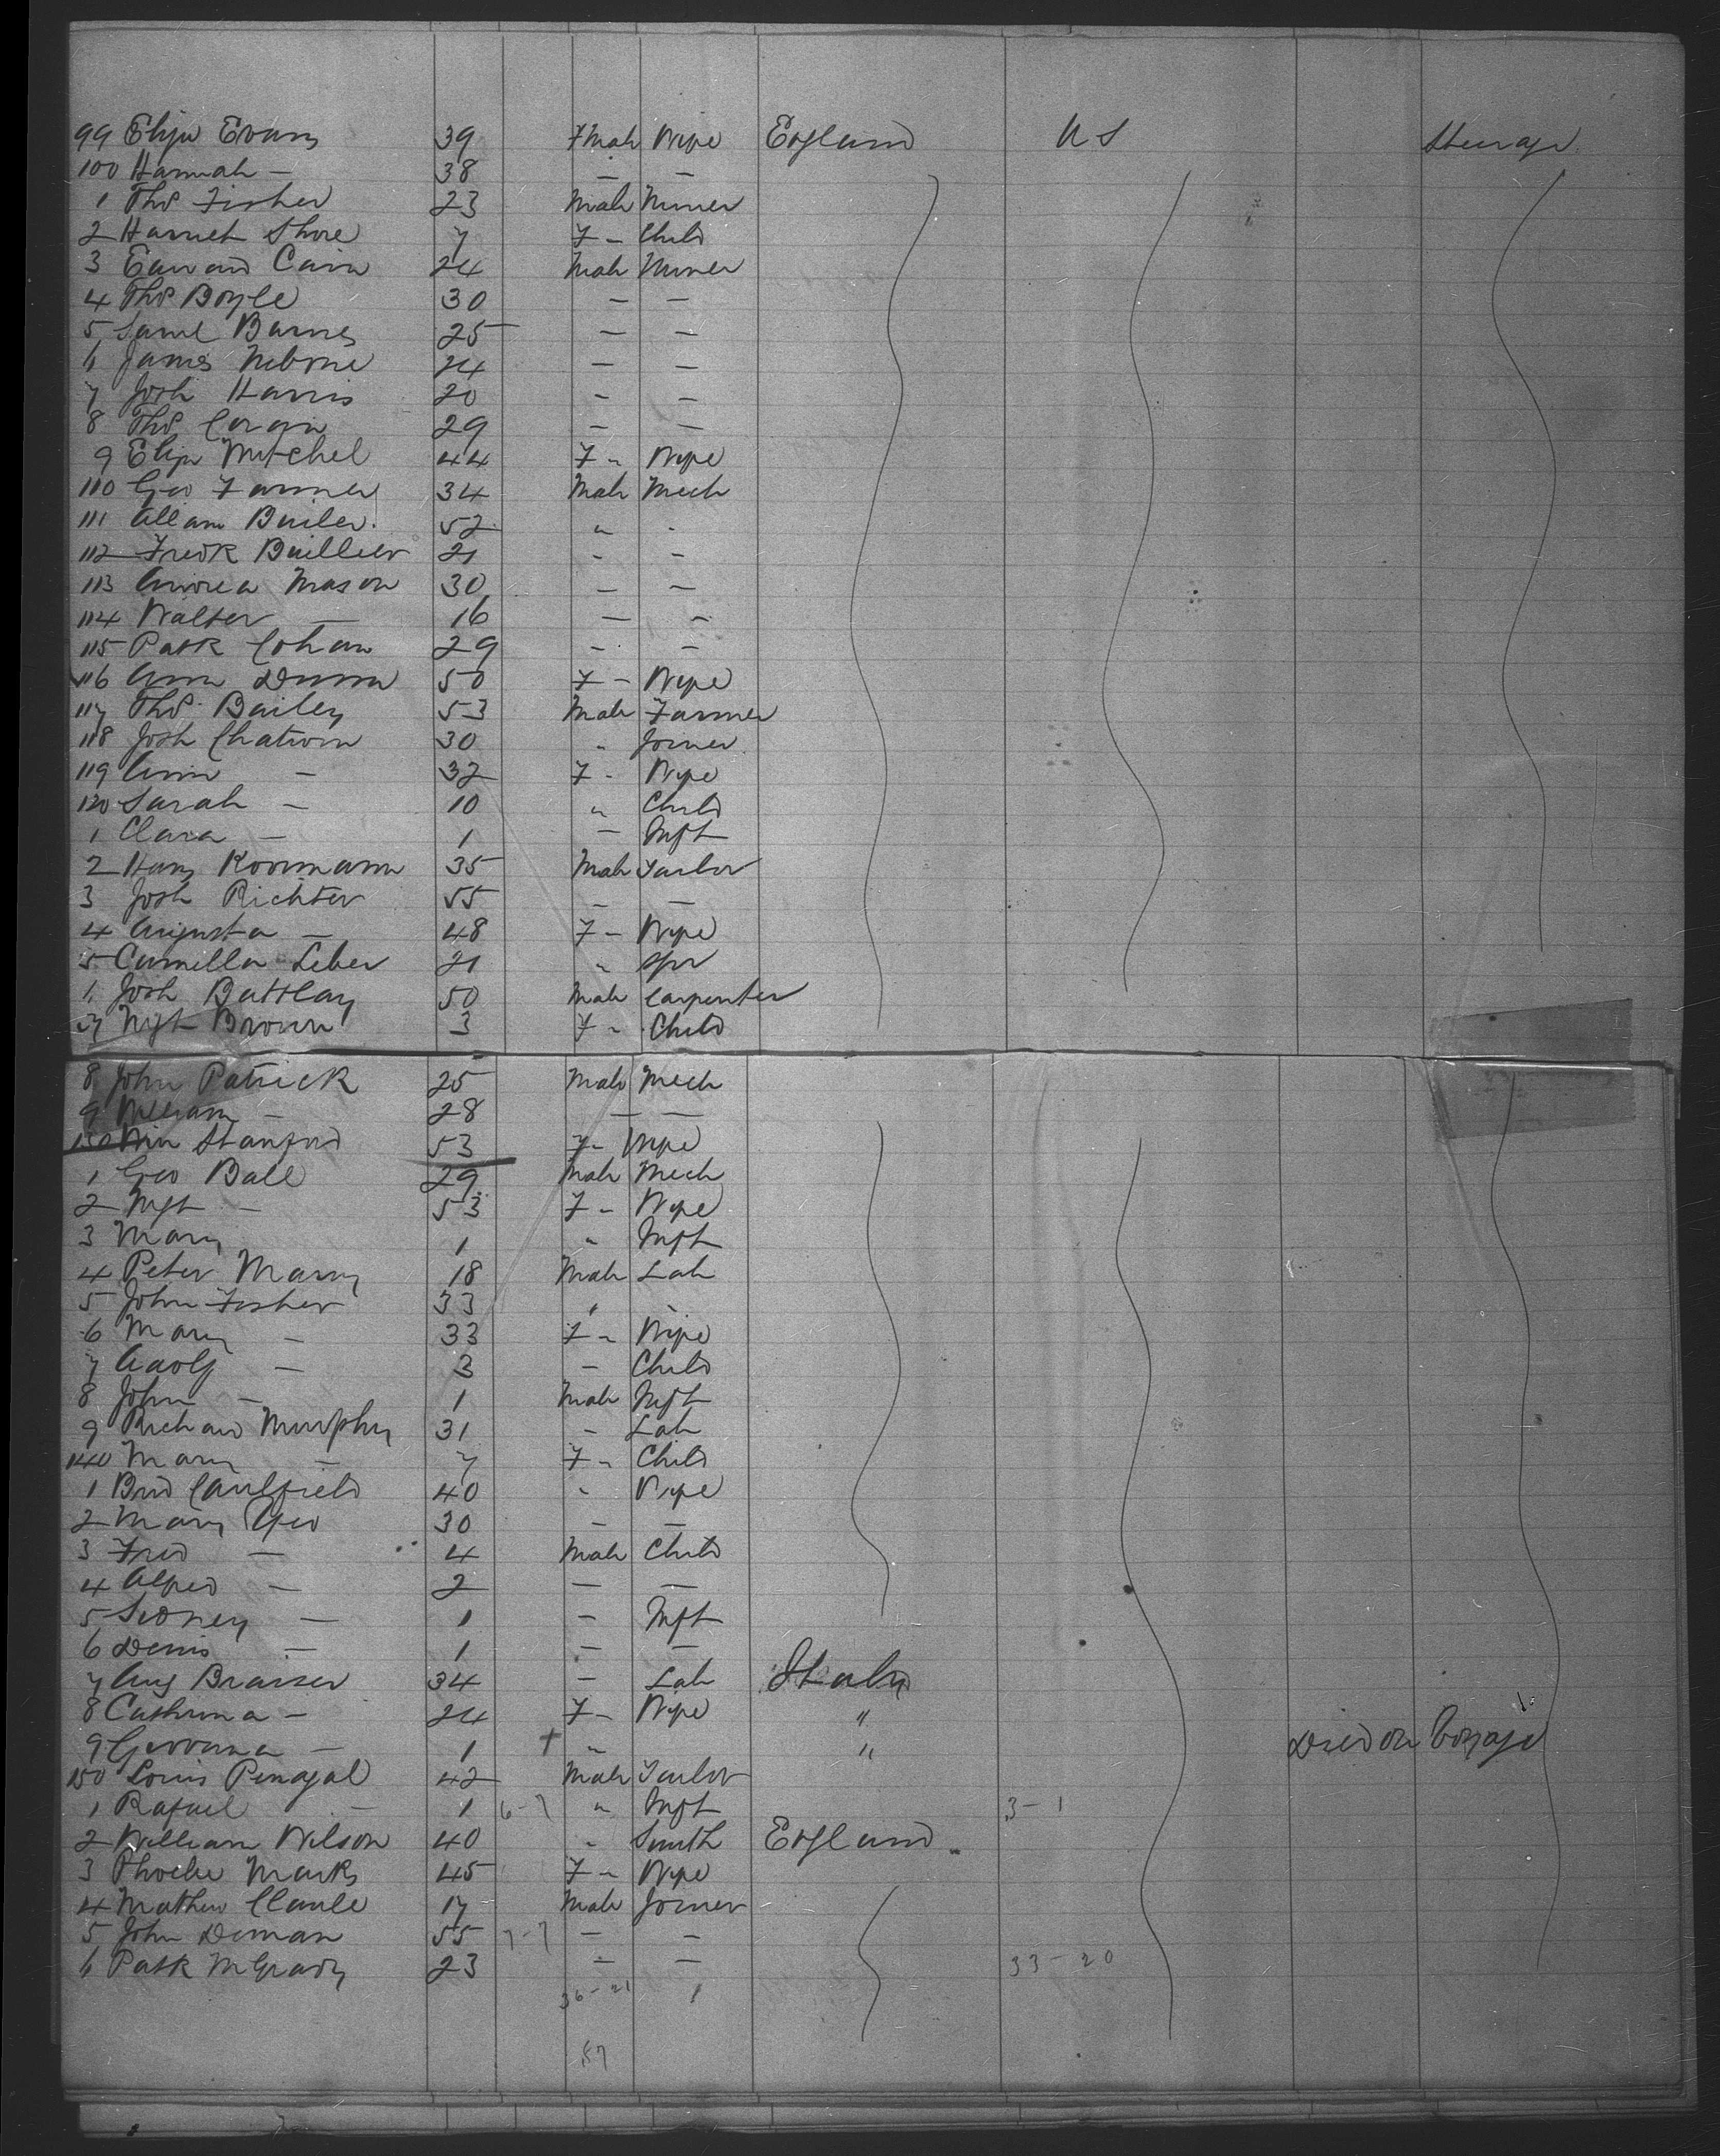 99 Eliza Evans 39 Fmale Wife England U S Steerage
100 Hannah — 38 — —
1 Thos Fisher 23 Male Miner
2 Harriet Shore 7 F — Child
3 Edward Cain 24 Male Miner
4 Thos Boyle 30 — —
5 Saml Barnes 25 — —
6 James 24 — —
7 Josh Harris 20 — —
8 Thos 29 — —
9 Eliza Mitchel 44 F " Wife
110 Geo Farmer 34 Male Mech
111 52 " "
112 Fredk 21 " —
113 Andrew Mason 30 — —
114 Walter — 16 — "
115 Patk Cohan 29 — —
116 Ann Dunn 50 F — Wife
117 Thos Bailey 53 Male Farmer
118 Josh Chatwin 30 " Joiner
119 Ann — 32 F — Wife
120 Sarah — 10 " Child
1 Clara — 1 — Inft
2 Hans 35 Male Tailor
3 Josh Richter 55 — —
4 Augusta — 48 F — Wife
5 Camella Leber 21 " Spr
6 Josh Battlay 50 Male Carpenter
7 Mgt Brown 3 F — Child
8 John Patrick 25 Male Mech
9 William — 28 — —
130 Stanford 53 F " Wife
1 Geo Ball 29 Male Mech
2 Mgt — 53 F — Wife
3 Mary 1 " Inft
4 Peter 18 Male Lab
5 John Fisher 33 " "
6 Mary — 33 F — Wife
7 Adolf — 3 — Child
8 John — 1 Male Inft
9 Richard Murphy 31 — Lab
140 Mary — 7 F " Child
1 Brid Caulfield 40 " Wife
2 Mary Geo 30 — —
3 Fred — 4 Male Child
4 Alfred — 2 — —
5 Sidney — 1 — Inft
6 Denis — 1 — —
7 Aug 34 — Lab Italy
8 Cathrina — 24 F — Wife "
9 — 1 + " " Died on Voyage
150 Louis 42 Male Tailor
1 Rafael — 1 6-7 " Inft 3-1
2 William Wilson 40 " Smith England
3 Phoebe Marks 45 F — Wife
4 Mathew 17 Male Joiner
5 John 55 7-7 — —
6 Patk McGrady 23 — — 33-20
36-21 1
57